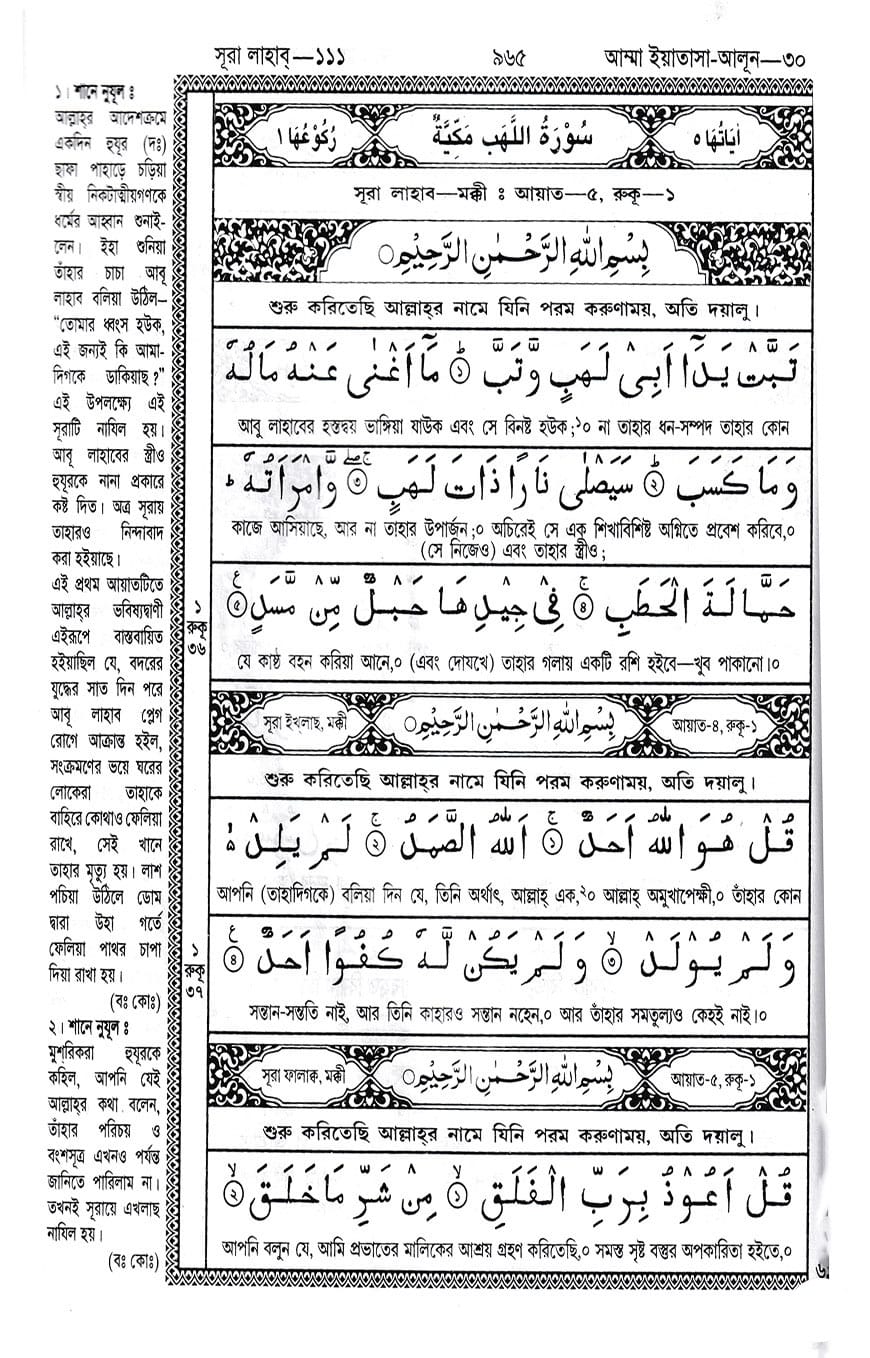 সূরা লাহাব্—১১১ ৯৬৫ আম্মা ইয়াতাসা-আলূন—৩০
اٰيَاتُهَا ٥ سُوْرَةُ اللَّهَبِ مَكِّيَّةٌ رُكُوْعُهَا ١
সূরা লাহাব—মক্কী ঃ আয়াত—৫, রুকূ—১
بِسْمِ اللهِ الرَّحْمٰنِ الرَّحِيْمِ
শুরু করিতেছি আল্লাহ্‌র নামে যিনি পরম করুণাময়, অতি দয়ালু।
تَبَّتْ يَدَآ اَبِىْ لَهَبٍ وَّتَبَّ ۝١ مَآ اَغْنٰى عَنْهُ مَالُهٗ
আবু লাহাবের হস্তদ্বয় ভাঙ্গিয়া যাউক এবং সে বিনষ্ট হউক;১০ না তাহার ধন-সম্পদ তাহার কোন
وَمَا كَسَبَ ۝٢ سَيَصْلٰى نَارًا ذَاتَ لَهَبٍ ۝٣ وَّامْرَاَتُهٗ ط
কাজে আসিয়াছে, আর না তাহার উপার্জন;০ অচিরেই সে এক শিখাবিশিষ্ট অগ্নিতে প্রবেশ করিবে,০
(সে নিজেও) এবং তাহার স্ত্রীও;
حَمَّالَةَ الْحَطَبِ ۝٤ فِىْ جِيْدِهَا حَبْلٌ مِّنْ مَّسَدٍ ۝٥
যে কাষ্ঠ বহন করিয়া আনে,০ (এবং দোযখে) তাহার গলায় একটি রশি হইবে—খুব পাকানো।০
সূরা ইখ্‌লাছ, মক্কী بِسْمِ اللهِ الرَّحْمٰنِ الرَّحِيْمِ আয়াত-৪, রুকূ-১
শুরু করিতেছি আল্লাহ্‌র নামে যিনি পরম করুণাময়, অতি দয়ালু।
قُلْ هُوَ اللهُ اَحَدٌ ۝١ اَللهُ الصَّمَدُ ۝٢ لَمْ يَلِدْ ه
আপনি (তাহাদিগকে) বলিয়া দিন যে, তিনি অর্থাৎ, আল্লাহ্ এক,২০ আল্লাহ্ অমুখাপেক্ষী,০ তাঁহার কোন
وَلَمْ يُوْلَدْ ۝٣ وَلَمْ يَكُنْ لَّهٗ كُفُوًا اَحَدٌ ۝٤
সন্তান-সন্ততি নাই, আর তিনি কাহারও সন্তান নহেন,০ আর তাঁহার সমতুল্যও কেহই নাই।০
সূরা ফালাক, মক্কী بِسْمِ اللهِ الرَّحْمٰنِ الرَّحِيْمِ আয়াত-৫, রুকূ-১
শুরু করিতেছি আল্লাহ্‌র নামে যিনি পরম করুণাময়, অতি দয়ালু।
قُلْ اَعُوْذُ بِرَبِّ الْفَلَقِ ۝١ مِنْ شَرِّ مَا خَلَقَ ۝٢
আপনি বলুন যে, আমি প্রভাতের মালিকের আশ্রয় গ্রহণ করিতেছি,০ সমস্ত সৃষ্ট বস্তুর অপকারিতা হইতে,০
১। শানে নুযূল ঃ
আল্লাহ্‌র আদেশক্রমে
একদিন হুযূর (দঃ)
ছাফা পাহাড়ে চড়িয়া
স্বীয় নিকটাত্মীয়গণকে
ধর্মের আহ্বান শুনাই-
লেন। ইহা শুনিয়া
তাঁহার চাচা আবূ
লাহাব বলিয়া উঠিল–
“তোমার ধ্বংস হউক,
এই জন্যই কি আমা-
দিগকে ডাকিয়াছ?”
এই উপলক্ষ্যে এই
সূরাটি নাযিল হয়।
আবূ লাহাবের স্ত্রীও
হুযূরকে নানা প্রকারে
কষ্ট দিত। অত্র সূরায়
তাহারও নিন্দাবাদ
করা হইয়াছে।
এই প্রথম আয়াতটিতে
আল্লাহ্‌র ভবিষ্যদ্বাণী
এইরূপে বাস্তবায়িত
হইয়াছিল যে, বদরের
যুদ্ধের সাত দিন পরে
আবূ লাহাব প্লেগ
রোগে আক্রান্ত হইল,
সংক্রমণের ভয়ে ঘরের
লোকেরা তাহাকে
বাহিরে কোথাও ফেলিয়া
রাখে, সেই খানে
তাহার মৃত্যু হয়। লাশ
পচিয়া উঠিলে ডোম
দ্বারা উহা গর্তে
ফেলিয়া পাথর চাপা
দিয়া রাখা হয়।
(বঃ কোঃ)
২। শানে নুযূল ঃ
মুশ্‌রিকরা হুযূরকে
কহিল, আপনি যেই
আল্লাহ্‌র কথা বলেন,
তাঁহার পরিচয় ও
বংশসূত্র এখনও পর্যন্ত
জানিতে পারিলাম না।
তখনই সূরায়ে এখলাছ
নাযিল হয়।
(বঃ কোঃ)
১
রুকূ
৩৬
১
রুকূ
৩৭